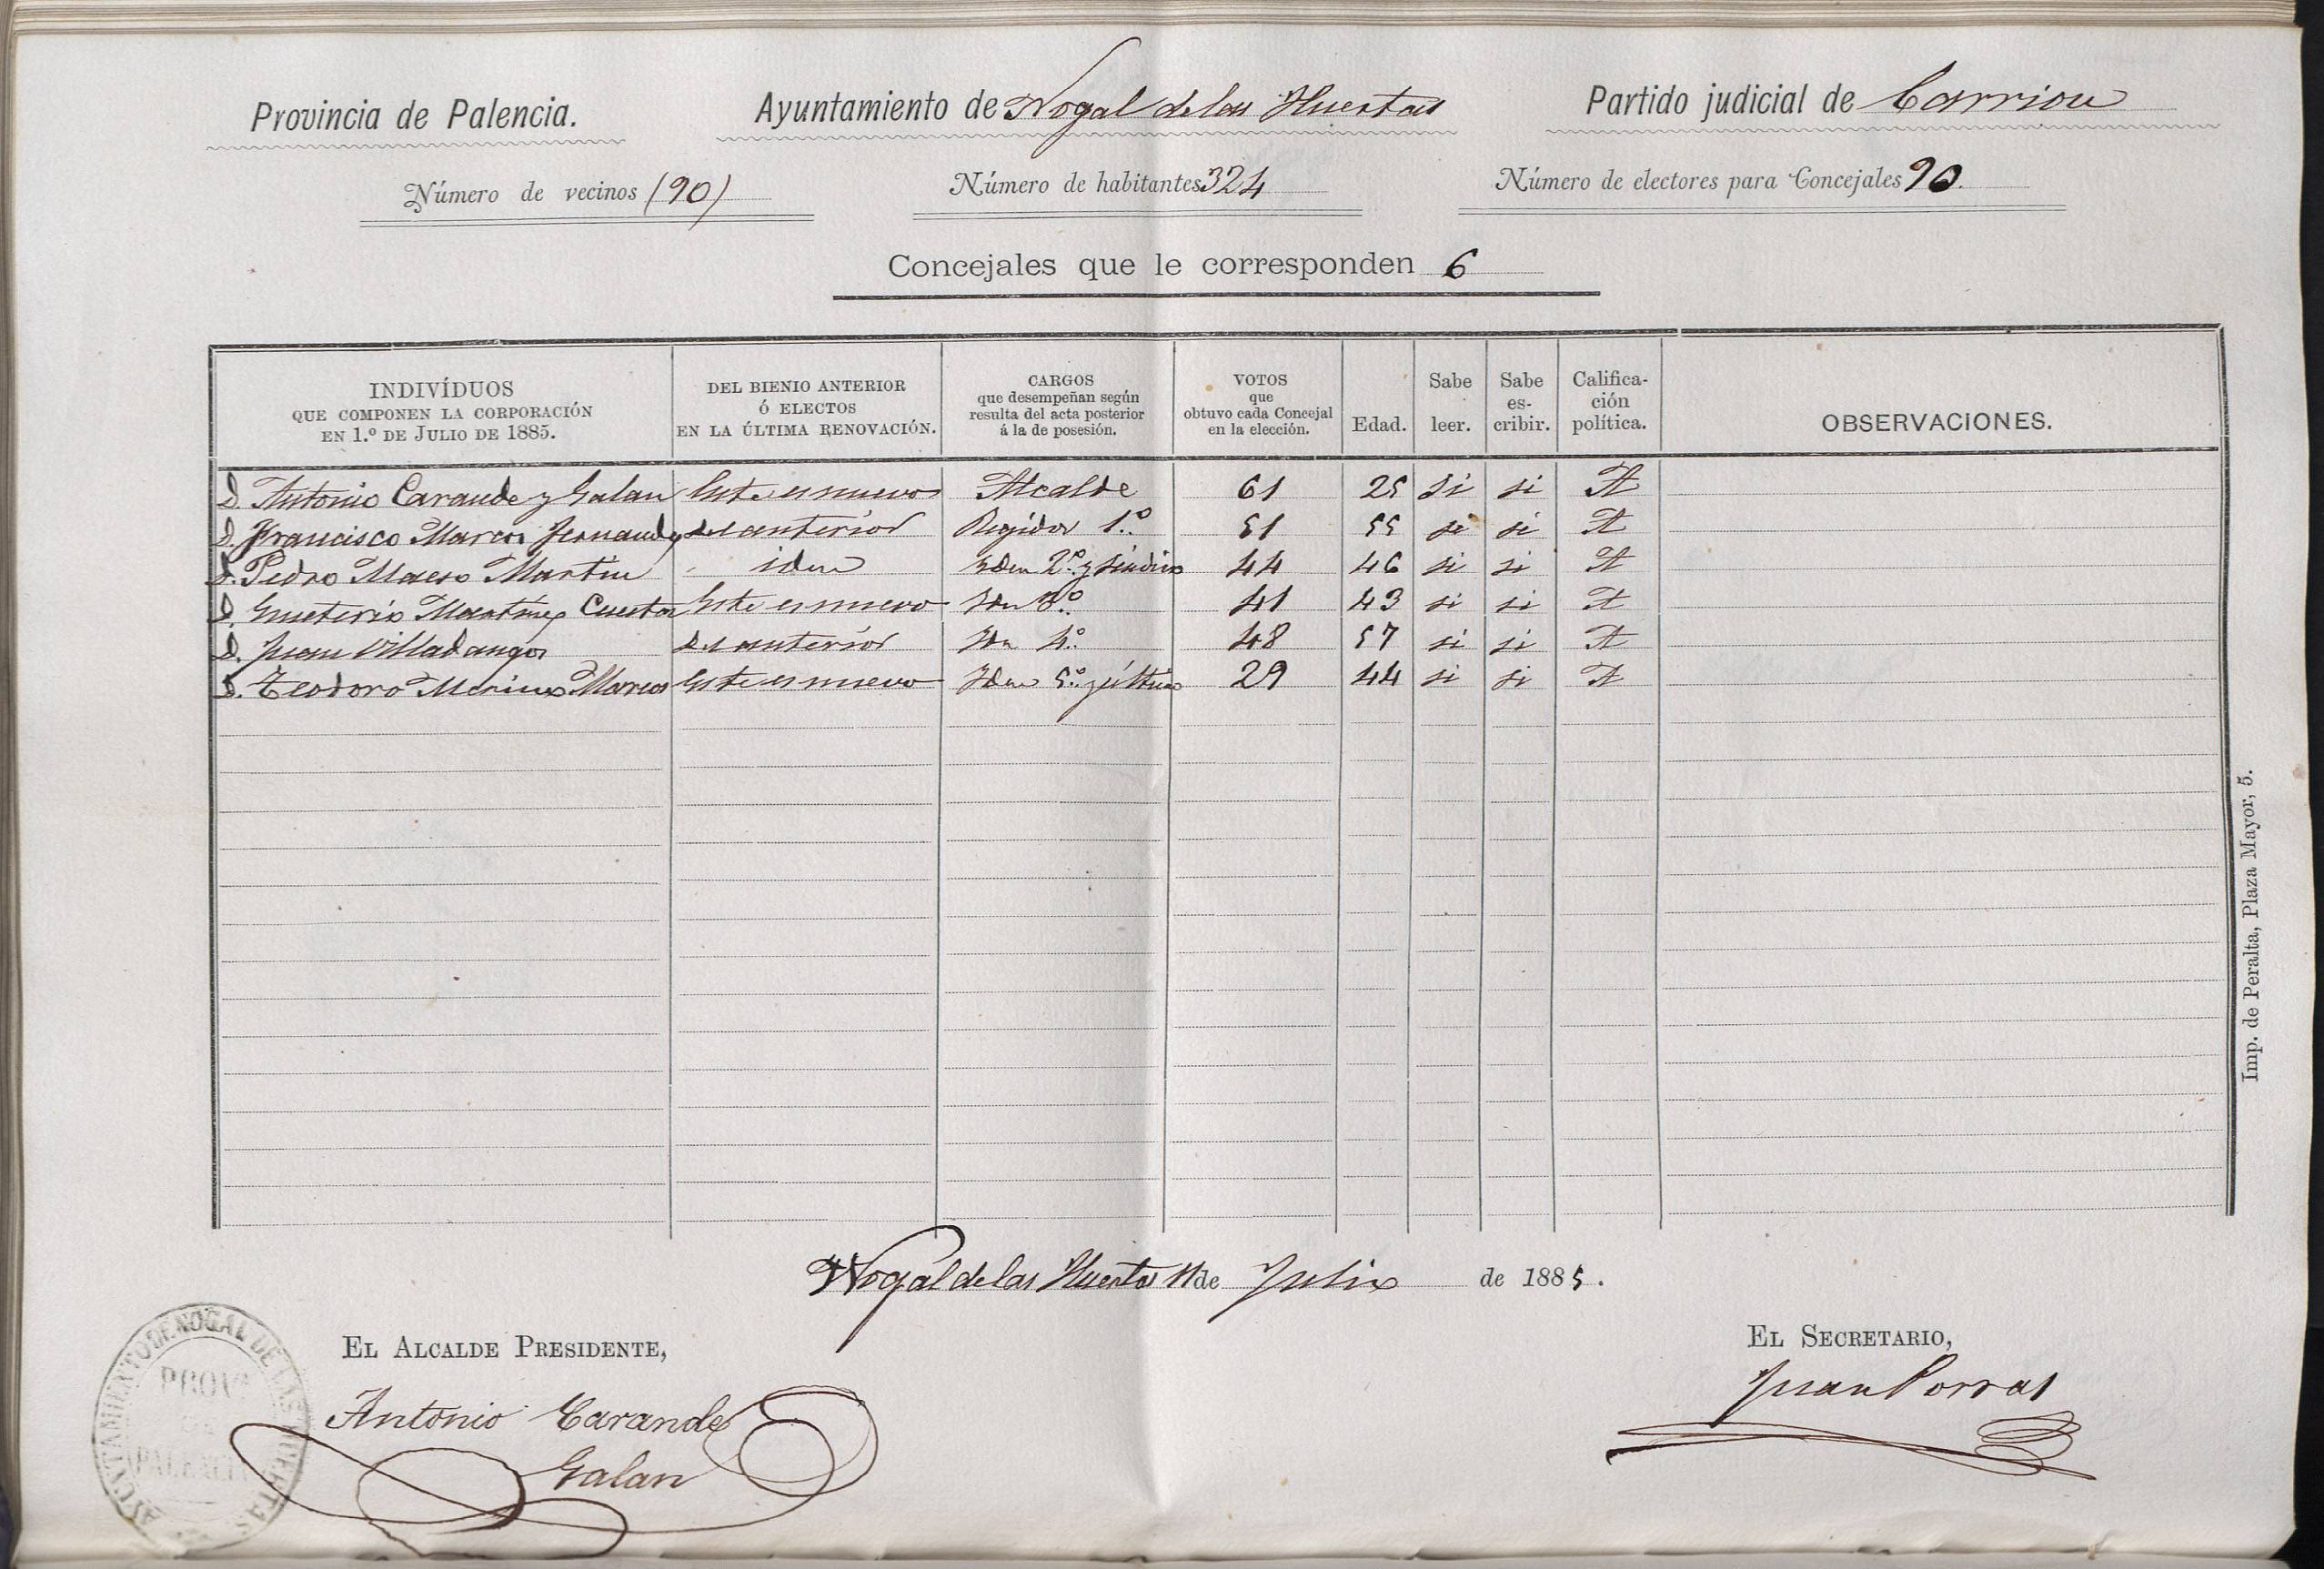 Provincia de Palencia. Ayuntamiento de Nogal de las Huertas Partido judicial de Carrion
Número de vecinos (90) Número de habitantes 324 Número de electores para Concejales 90.
Concejales que le corresponden 6
INDIVÍDUOS QUE COMPONEN LA CORPORACIÓN EN 1.º DE JULIO DE 1885. DEL BIENIO ANTERIOR Ó ELECTOS EN LA ÚLTIMA RENOVACIÓN. CARGOS que desempeñan según resulta del acta posterior á la de posesión. VOTOS que obtuvo cada Concejal en la elección. Edad. Sabe leer. Sabe es-cribir. Califica-ción política. OBSERVACIONES.
D. Antonio Carande y Galan Este es nuevo Alcalde 61 25 si si A
D. Francisco Marcos Fernandez del anterior Regidor 1.º 51 55 si si A
D. Pedro Maeso Martin idem Idem 2.º y síndico 44 46 si si A
D. Emeterio Martinez Cuesta Este es nuevo Idem 3.º 41 43 si si A
D. Juan Villadangos del anterior Idm 4.º 48 57 si si A
D. Teodoro Merino Marcos Este es nuevo Idem 5.º y último 29 44 si si A
Imp. de Peralta, Plaza Mayor, 5.
Nogal de las Huertas 11 de Julio de 1885.
EL ALCALDE PRESIDENTE, EL SECRETARIO,
Antonio Carande Juan Porras
Galan
AYUNTAMIENTO DE NOGAL DE LAS HUERTAS
PROVª
DE
PALENCIA